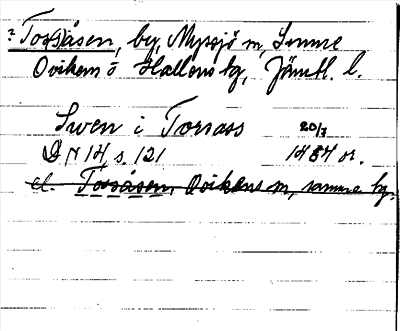 ? Torsåsen, by, Myssjö sn, Sunne
Ovikens o Hallens tg, Jämtl. l.
Swen i Torrass 20/7
DN 14, s. 121 1484 or.
el. Torsåsen, Ovikens sn, samma tg.